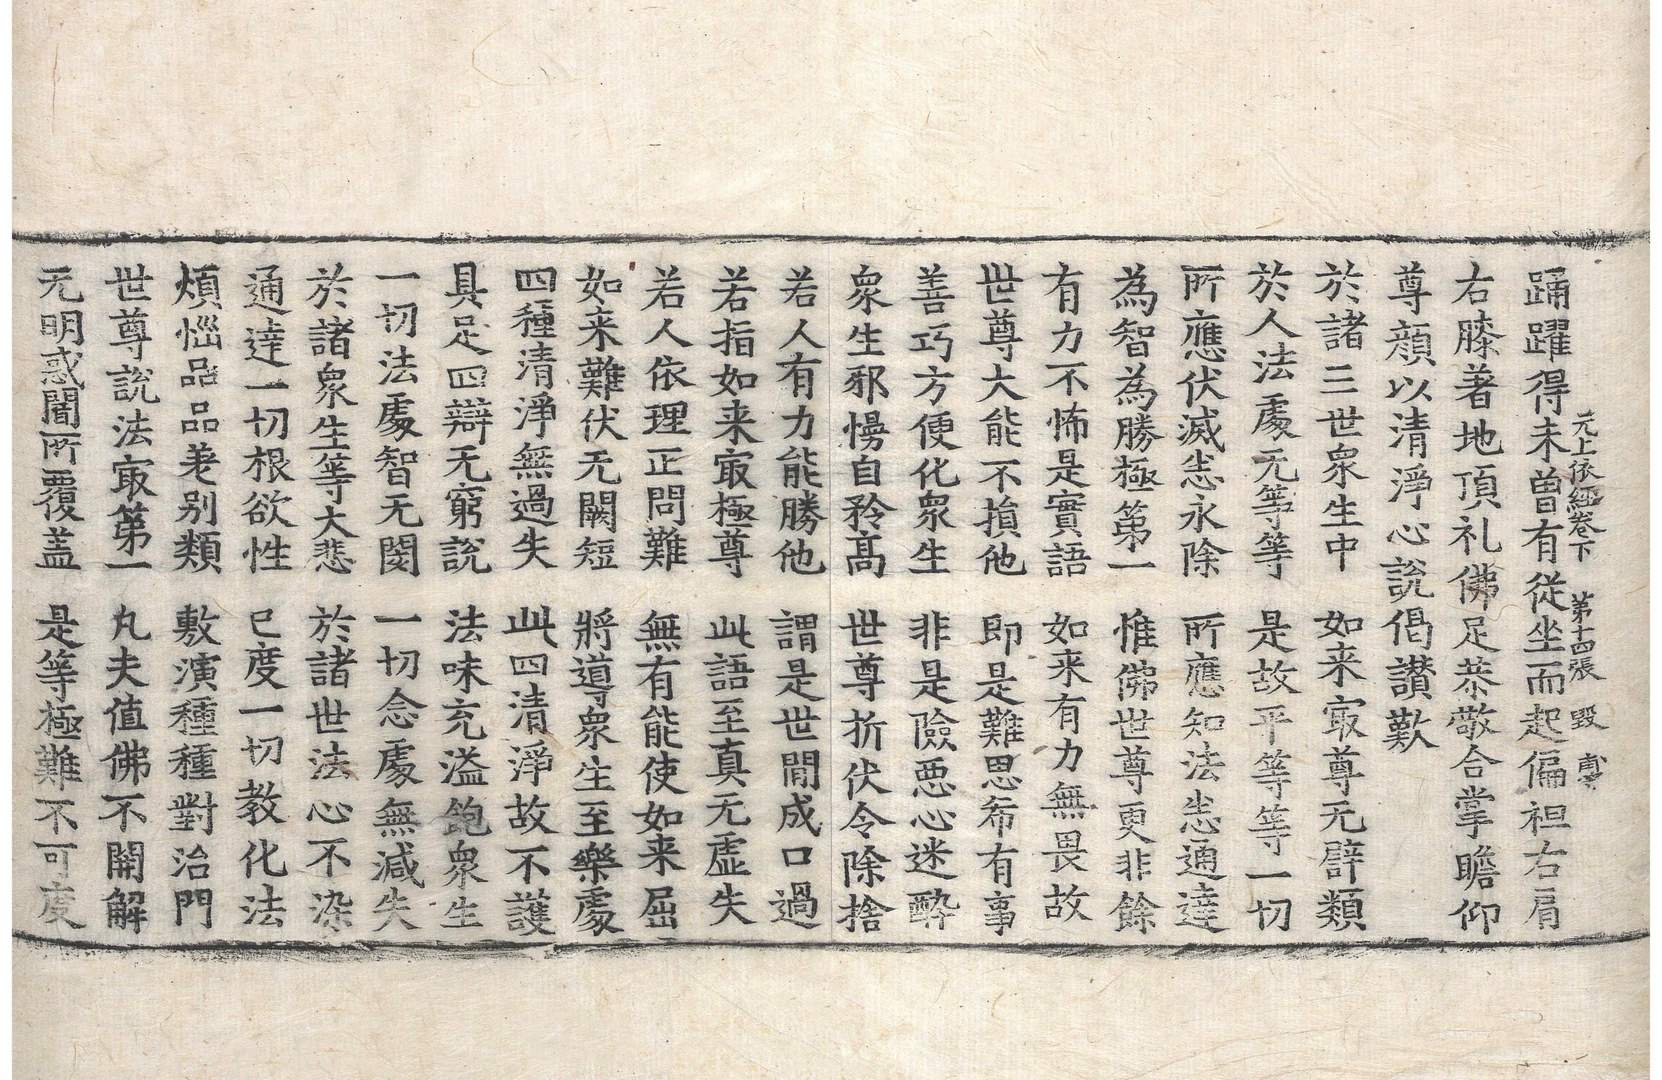 无上依經卷下 第十四張 毀
踊躍得未曾有從坐而起偏袒右肩
右膝著地頂礼佛足恭敬合掌瞻仰
尊顔以清淨心說偈讃歎
於諸三世衆生中 如来㝡尊无譬類
於人法處无等等 是故平等等一切
所應伏滅悉永除 所應知法悉通達
為智為勝極第一 惟佛世尊更非餘
有力不怖是實語 如来有力無畏故
世尊大能不損他 即是難思希有事
善巧方便化衆生 非是險惡心迷醉
衆生邪慢自矜高 世尊折伏令除捨
若人有力能勝他 謂是世間成口過
若指如来㝡極尊 此語至真无虛失
若人依理正問難 無有能使如来屈
如来難伏无闕短 將導衆生至樂處
四種清淨無過失 此四清淨故不護
具足四辯无窮說 法味充溢飽衆生
一切法處智无閡 一切念處無減失
於諸衆生等大悲 於諸世法心不染
通達一切根欲性 已度一切教化法
煩惱品品差別類 敷演種種對治門
世尊說法㝡第一 丸夫值佛不開解
无明惑闇所覆盖 是等極難不可度